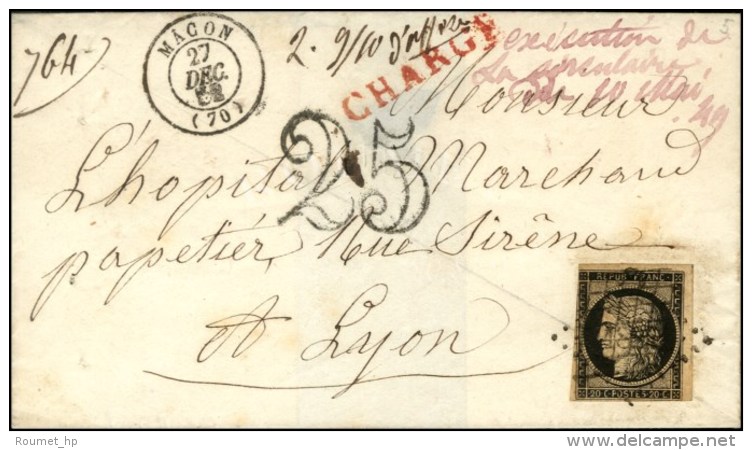 764
MÂCON
27
DEC.
52
(70)
2. 9/10 d'office
CHARGÉ
exécution de
La circulaire
du 10 Mai
49
25
Monsieur
L'hopital Marchand
papetier, Rue Sirène
At Lyon
REPUB. FRANC.
20 C POSTES 20 C
Roumet_hp
delcampe.net